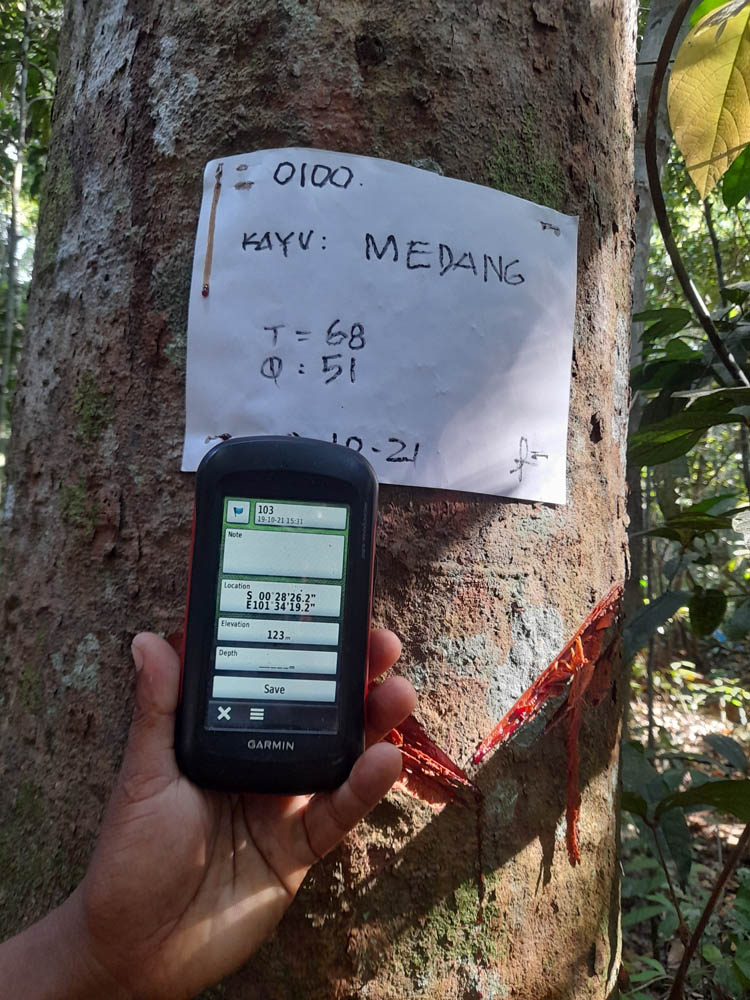 = 0100.
KAYU: MEDANG
T = 68
Φ : 51
10-21
103
19-10-21 15:31
Note
Location
S 00°28'26.2"
E101°34'19.2"
Elevation
123 m
Depth
_____m
Save
GARMIN